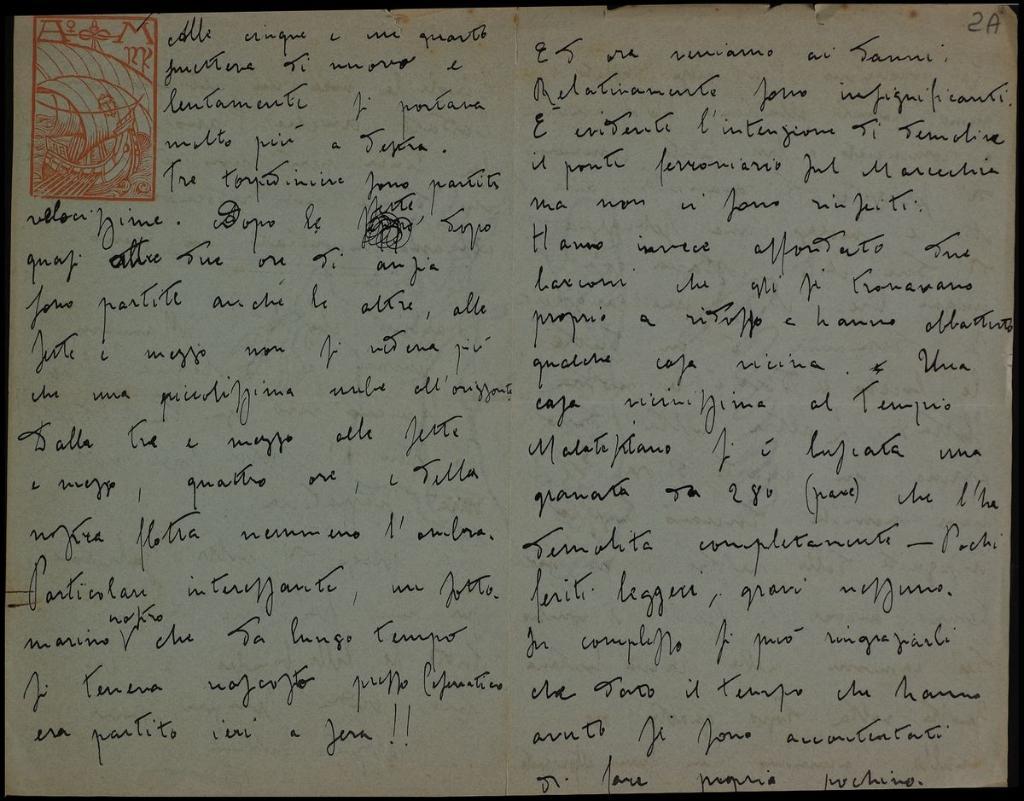 A M
Alle cinque e un quarto
smetteva di nuovo e
lentamente si portava
molto più a destra.
Tre torpediniere sono partite
velocissime. Dopo le sette dopo
quasi altre due ore di ansia
sono partite anche le altre, alle
sette e mezzo non si vedeva più
che una piccolissima nube all'orizzonte
Dalla tre e mezzo alle sette
e mezzo, quattro ore, e della
nostra flotta nemmeno l'ombra.
Particolare interessante, un sotto-
marino nostro che da lungo tempo
si teneva nascosto presso Cesenatico
era partito ieri a sera!!
2A
Ed ora veniamo ai danni.
Relativamente sono insignificanti.
È evidente l'intenzione di demolire
il ponte ferroviario sul Marecchia
ma non ci sono riusciti.
Hanno invece affondato due
barconi che gli si trovavano
proprio a ridosso e hanno abbattuto
qualche casa vicina. Una
casa vicinissima al Tempio
Malatestiano si è buscata una
granata da 280 (pare) che l'ha
demolita completamente – Pochi
feriti leggeri, gravi nessuno.
In complesso si può ringraziarli
che dato il tempo che hanno
avuto si sono accontentati
di fare proprio pochino.